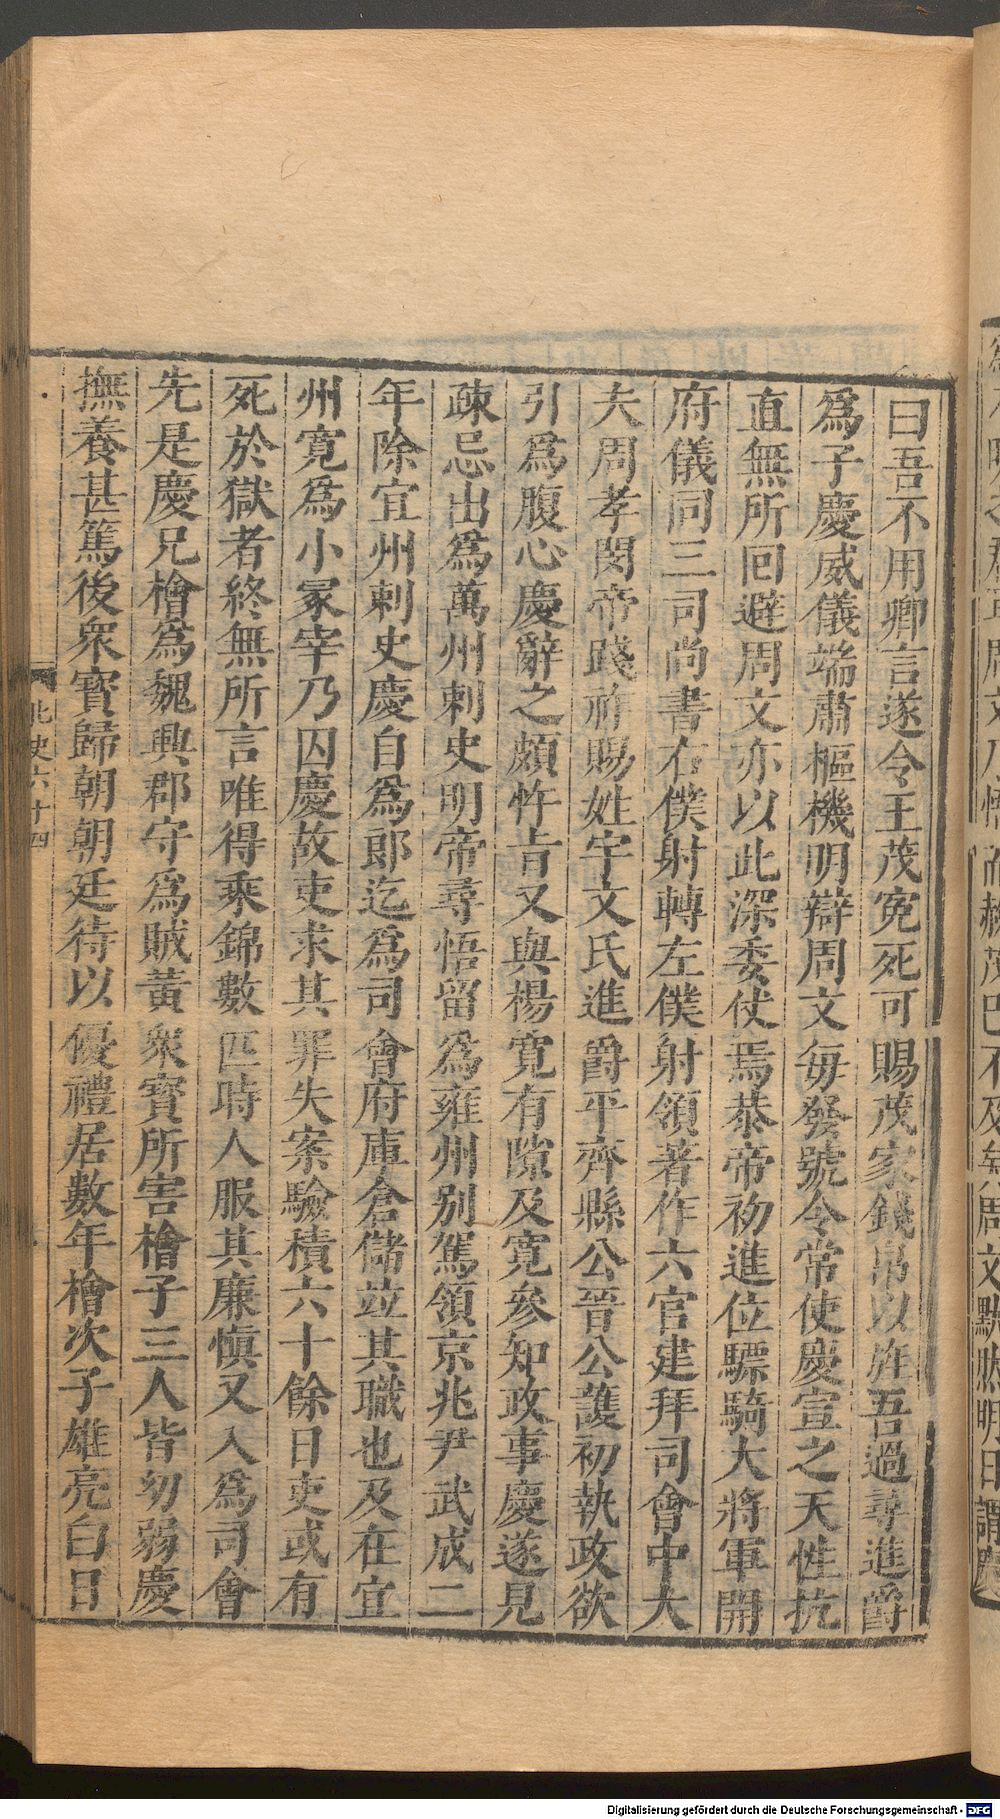 曰吾不用卿言遂令王茂冤死可賜茂家錢帛以旌吾過尋進爵
爲子慶威儀端肅樞機明辯周文每發號令常使慶宣之天性抗
直無所回避周文亦以此深委仗焉恭帝初進位驃騎大將軍開
府儀同三司尚書右僕射轉左僕射領著作六官建拜司會中大
夫周孝閔帝踐祚賜姓宇文氏進爵平齊縣公晉公護初執政欲
引爲腹心慶辭之頗忤㫖又與楊寛有隙及寛參知政事慶遂見
疎忌出爲萬州刺史明帝尋悟留爲雍州別駕領京兆尹武成二
年除宜州刺史慶自爲郎迄爲司會府庫倉儲竝其職也及在宜
州寛爲小冢宰乃囚慶故吏求其罪失案驗積六十餘日吏或有
死於獄者終無所言唯得乘錦數匹時人服其廉愼又入爲司會
先是慶兄檜爲魏興郡守爲賊黃衆寳所害檜子三人皆幼弱慶
撫養甚篤後衆寳歸朝朝廷待以優禮居數年檜次子雄亮白日
北史六十四
Digitalisierung gefördert durch die Deutsche Forschungsgemeinschaft - DFG